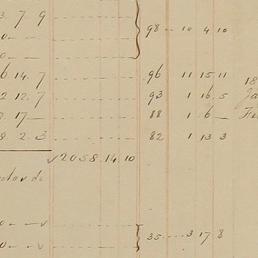 3. 7 9
0 — — 98 — 10 4 10
0 — —
6 14. 7 96 11 15 11 18
2 12. 7 93 1 16 5 Ja
8. 17 — 88 1 6 — Fe
9 2. 3 82 1 13 3
√2058. 14. 10
0 — — v
0 — — v 35 — 3 17 8